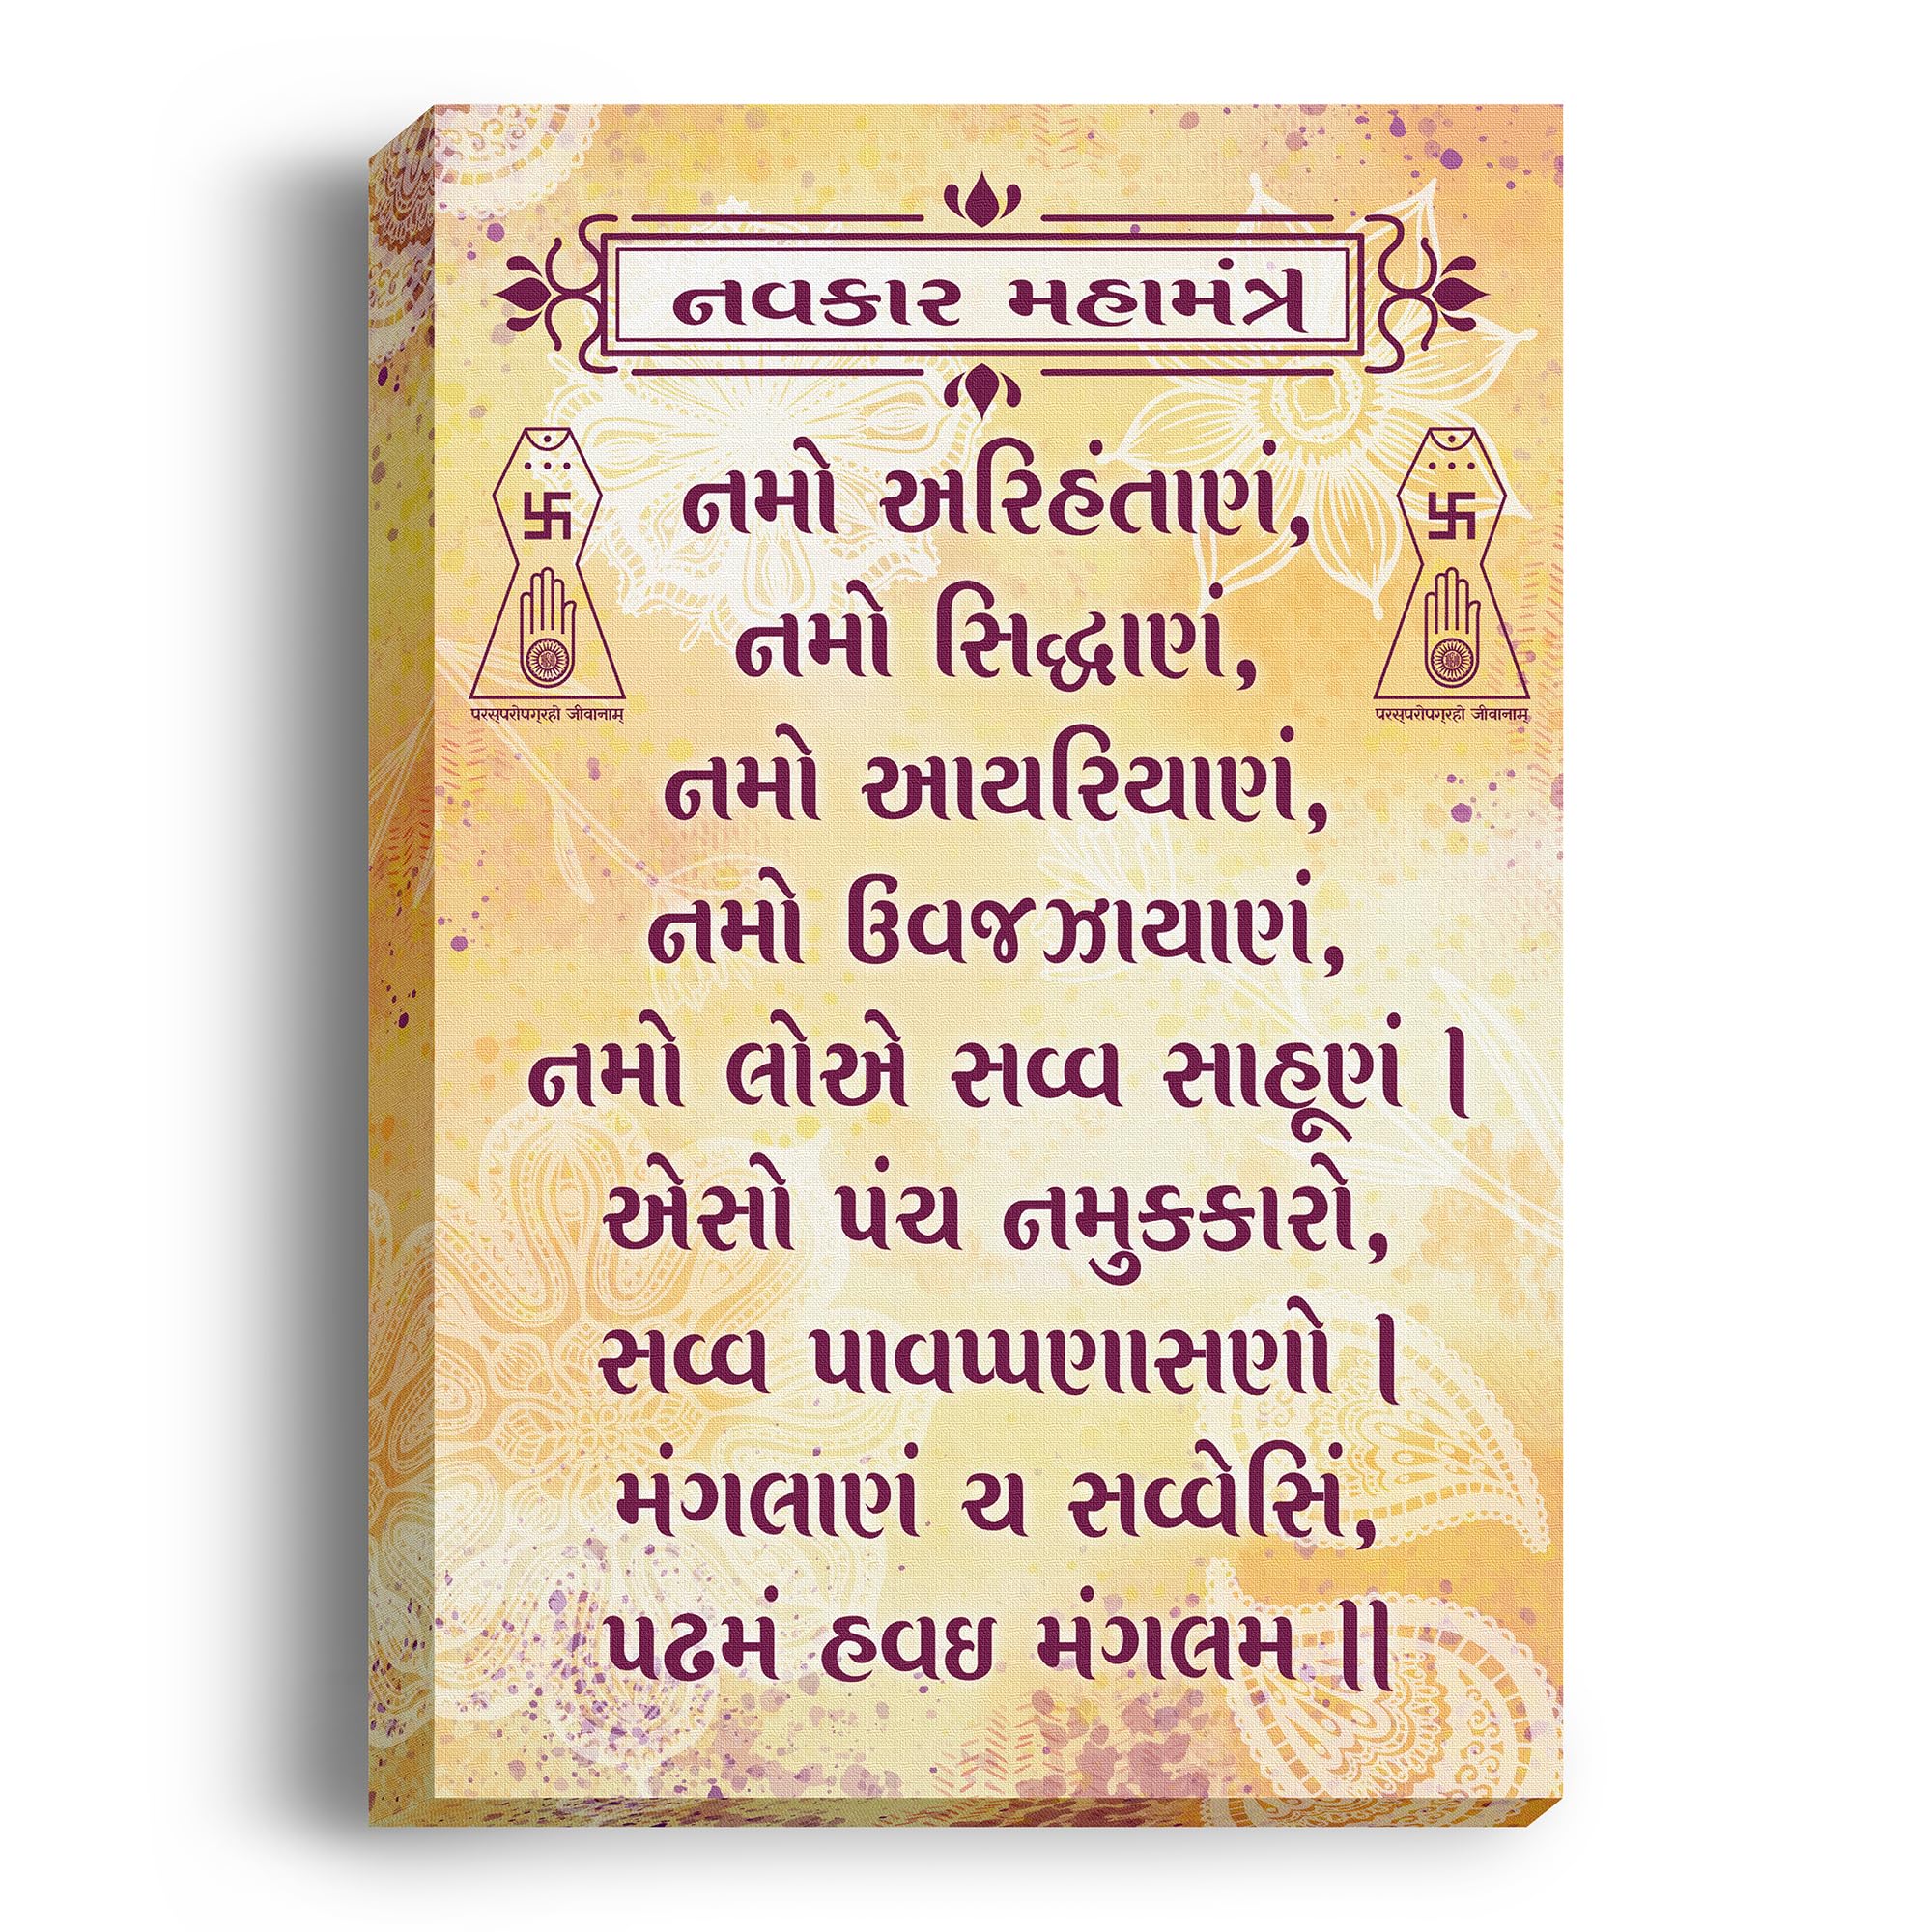 નવકાર મહામંત્ર
નમો અરિહંતાણં,
નમો સિદ્ધાણં,
परस्परोपग्रहो जीवानाम्
परस्परोपग्रहो जीवानाम्
નમો આયરિયાણં,
નમો ઉવજઝાયાણં,
નમો લોએ સવ્વ સાહૂણં |
એસો પંચ નમુકકારો,
સવ્વ પાવપ્પણાસણો |
મંગલાણં ચ સવ્વેસિં,
પઢમં હવઇ મંગલમ ||